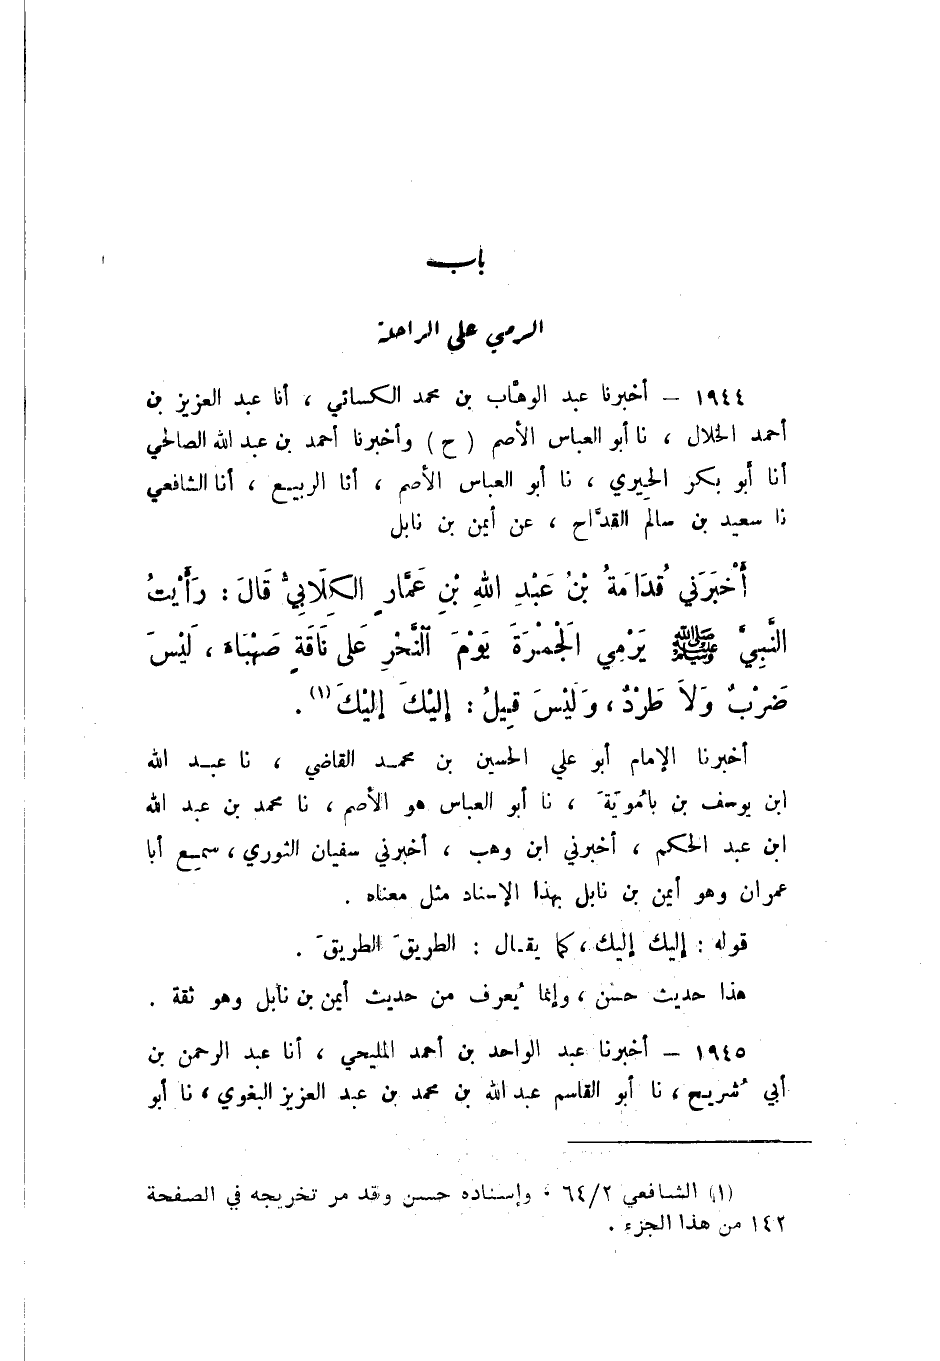 باب
الرمي على الراحلة
١٩٤٤ – أخبرنا عبد الوهَّاب بن محمد الكسائي ، أنا عبد العزيز بن
أحمد الخلال ، نا أبو العباس الأصم ( ح ) وأخبرنا أحمد بن عبد الله الصالحي
أنا أبو بكر الحيري ، نا أبو العباس الأصم ، أنا الربيع ، أنا الشافعي
نا سعيد بن سالم القدَّاح ، عن أيمن بن نابل
أَخْبَرَني قُدَامَةُ بْنُ عَبْدِ اللهِ بْنِ عَمَّارٍ الكِلَابِيُّ قَالَ : رَأَيْتُ
النَّبِيَّ ﷺ يَرْمِي الجَمْرَةَ يَوْمَ ٱلنَّحْرِ عَلى نَاقَةٍ صَهْبَاءَ ، لَيْسَ
ضَرْبٌ وَلَا طَرْدٌ ، وَلَيْسَ قِيلُ : إِلَيْكَ إِلَيْكَ (١) .
أخبرنا الإمام أبو علي الحسين بن محمد القاضي ، نا عبد الله
ابن يوسف بن بامُويَهَ ، نا أبو العباس هو الأصم ، نا محمد بن عبد الله
ابن عبد الحكم ، أخبرني ابن وهب ، أخبرني سفيان الثوري ، سمع أبا
عمران وهو أيمن بن نابل بهذا الإسناد مثل معناه .
قوله : إليك إليك ، كما يقال : الطريقَ الطريقَ .
هذا حديث حسن ، وإنما يُعرف من حديث أيمن بن نابل وهو ثقة .
١٩٤٥ – أخبرنا عبد الواحد بن أحمد المليحي ، أنا عبد الرحمن بن
أبي شُريح ، نا أبو القاسم عبد الله بن محمد بن عبد العزيز البغوي ، نا أبو
(١) الشافعي ٦٤/٢ . وإسناده حسن وقد مر تخريجه في الصفحة
١٤٢ من هذا الجزء .